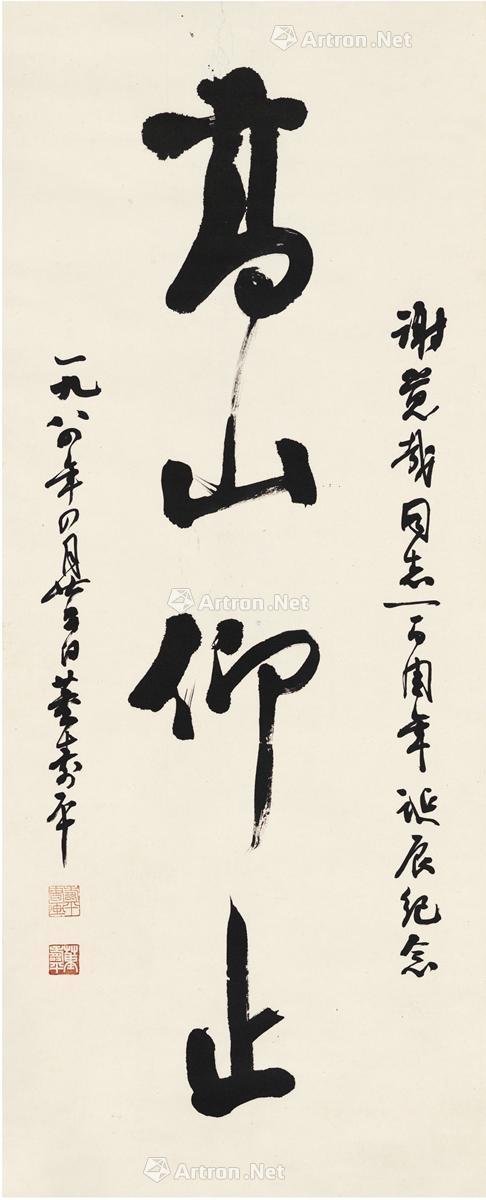 谢觉哉同志一百周年诞辰纪念
高山仰止
一九八四年四月廿三日董寿平
Artron.Net
Artron.Net
Artron.Net
Artron.Net